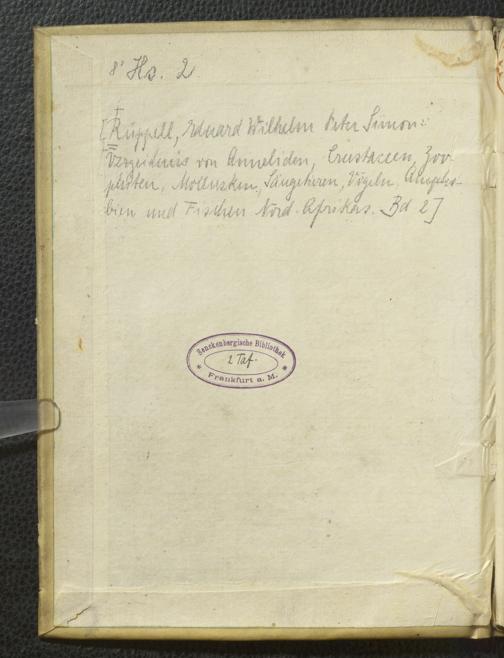 8° Hs. 2
[Rüppell, Eduard Wilhelm Peter Simon:
Verzeichnis von Anneliden, Crustaceen, Zoo-
phyten, Mollusken, Säugetieren, Vögeln, Amphi-
bien und Fischen Nord-Afrikas. Bd 2]
Senckenbergische Bibliothek
2 Taf.
* Frankfurt a. M. *